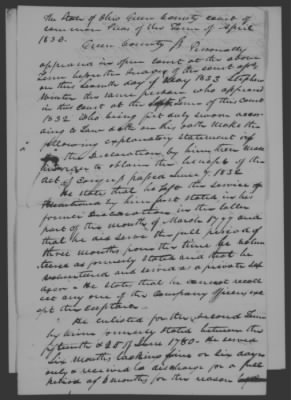 The State of Ohio Green County court of
common Pleas of the Term of April
1833.
Green County Personally
appeared in open court at the above
Term before the Judges of the court
on this Seventh day of May 1833 Stephen
the same person who appeared
in this court at the Term of this court
1832 Who being first duly sworn accor
ding to Law doth on his oath make the
following explanatory Statement of
the Declaration by him then made
to obtain the benefit of the
Act of Congress passed June 7, 1832
He states that he left the service of
by him first stated in his
former Declaration in the latter
part of the month of March 1777 and
that he did serve the full period of
three months from the time he volun
teered as formerly stated and that he
volunteered and served as a private
He states that he cannot recoll
ect any one of the Company officers ex
cept the captain.
He enlisted for the second Term
by him formerly stated between the
& 20th of June 1780. He served
Six months lacking five or six days
only & received a discharge for a full
period of 6 months for this reason